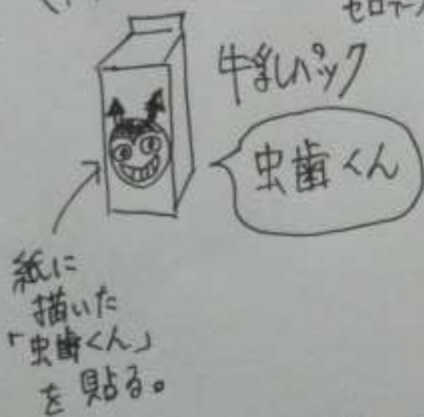 セロテープ
牛乳パック
虫歯くん
紙に
描いた
「虫歯くん」
を貼る。